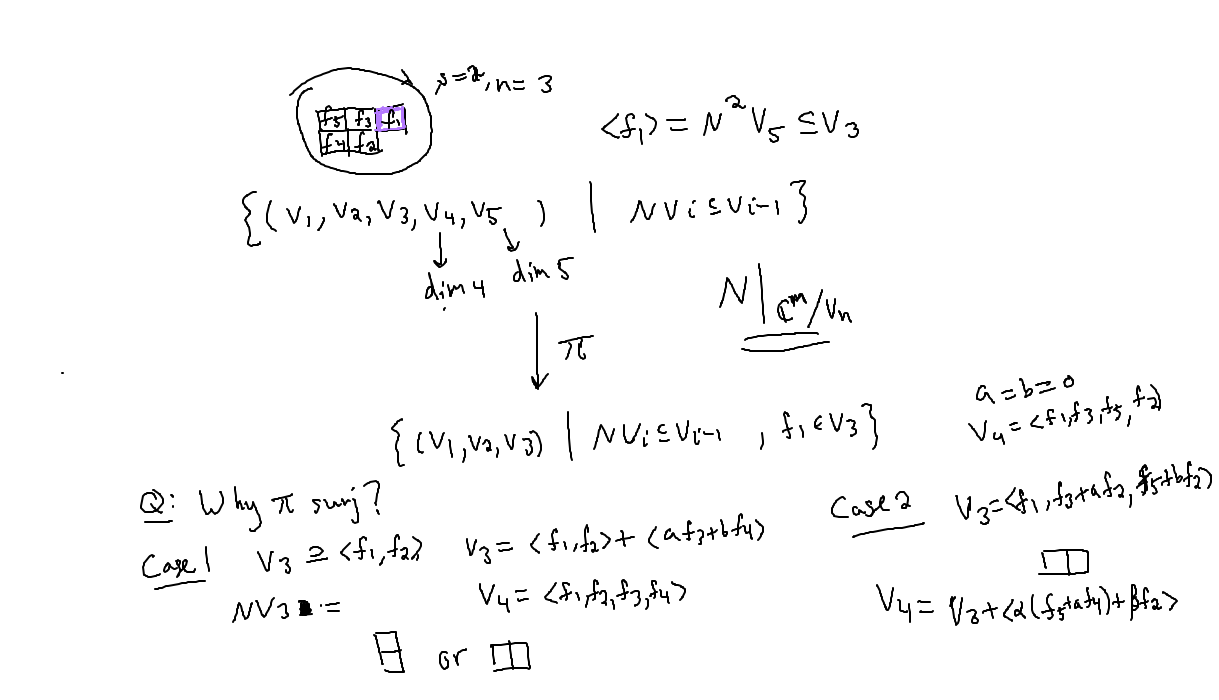 s=2, n=3
f5 f3 f1
f4 f2
<f1> = N^2 V5 ⊆ V3
{(V1, V2, V3, V4, V5) | NVi ⊆ Vi-1}
dim 4 dim 5
N|ℂ^m/Vn
π
{(V1, V2, V3) | NVi ⊆ Vi-1, f1 ∈ V3}
a=b=0
V4 = <f1, f3, f5, f2>
Q: Why π surj?
Case 1 V3 ⊇ <f1, f2> V3 = <f1, f2> + <af3+bf4>
NV3 =
V4 = <f1, f2, f3, f4>
or
Case 2 V3 = <f1, f3+af2, f5+bf2>
V4 = V3 + <α(f5+af4)+βf2>